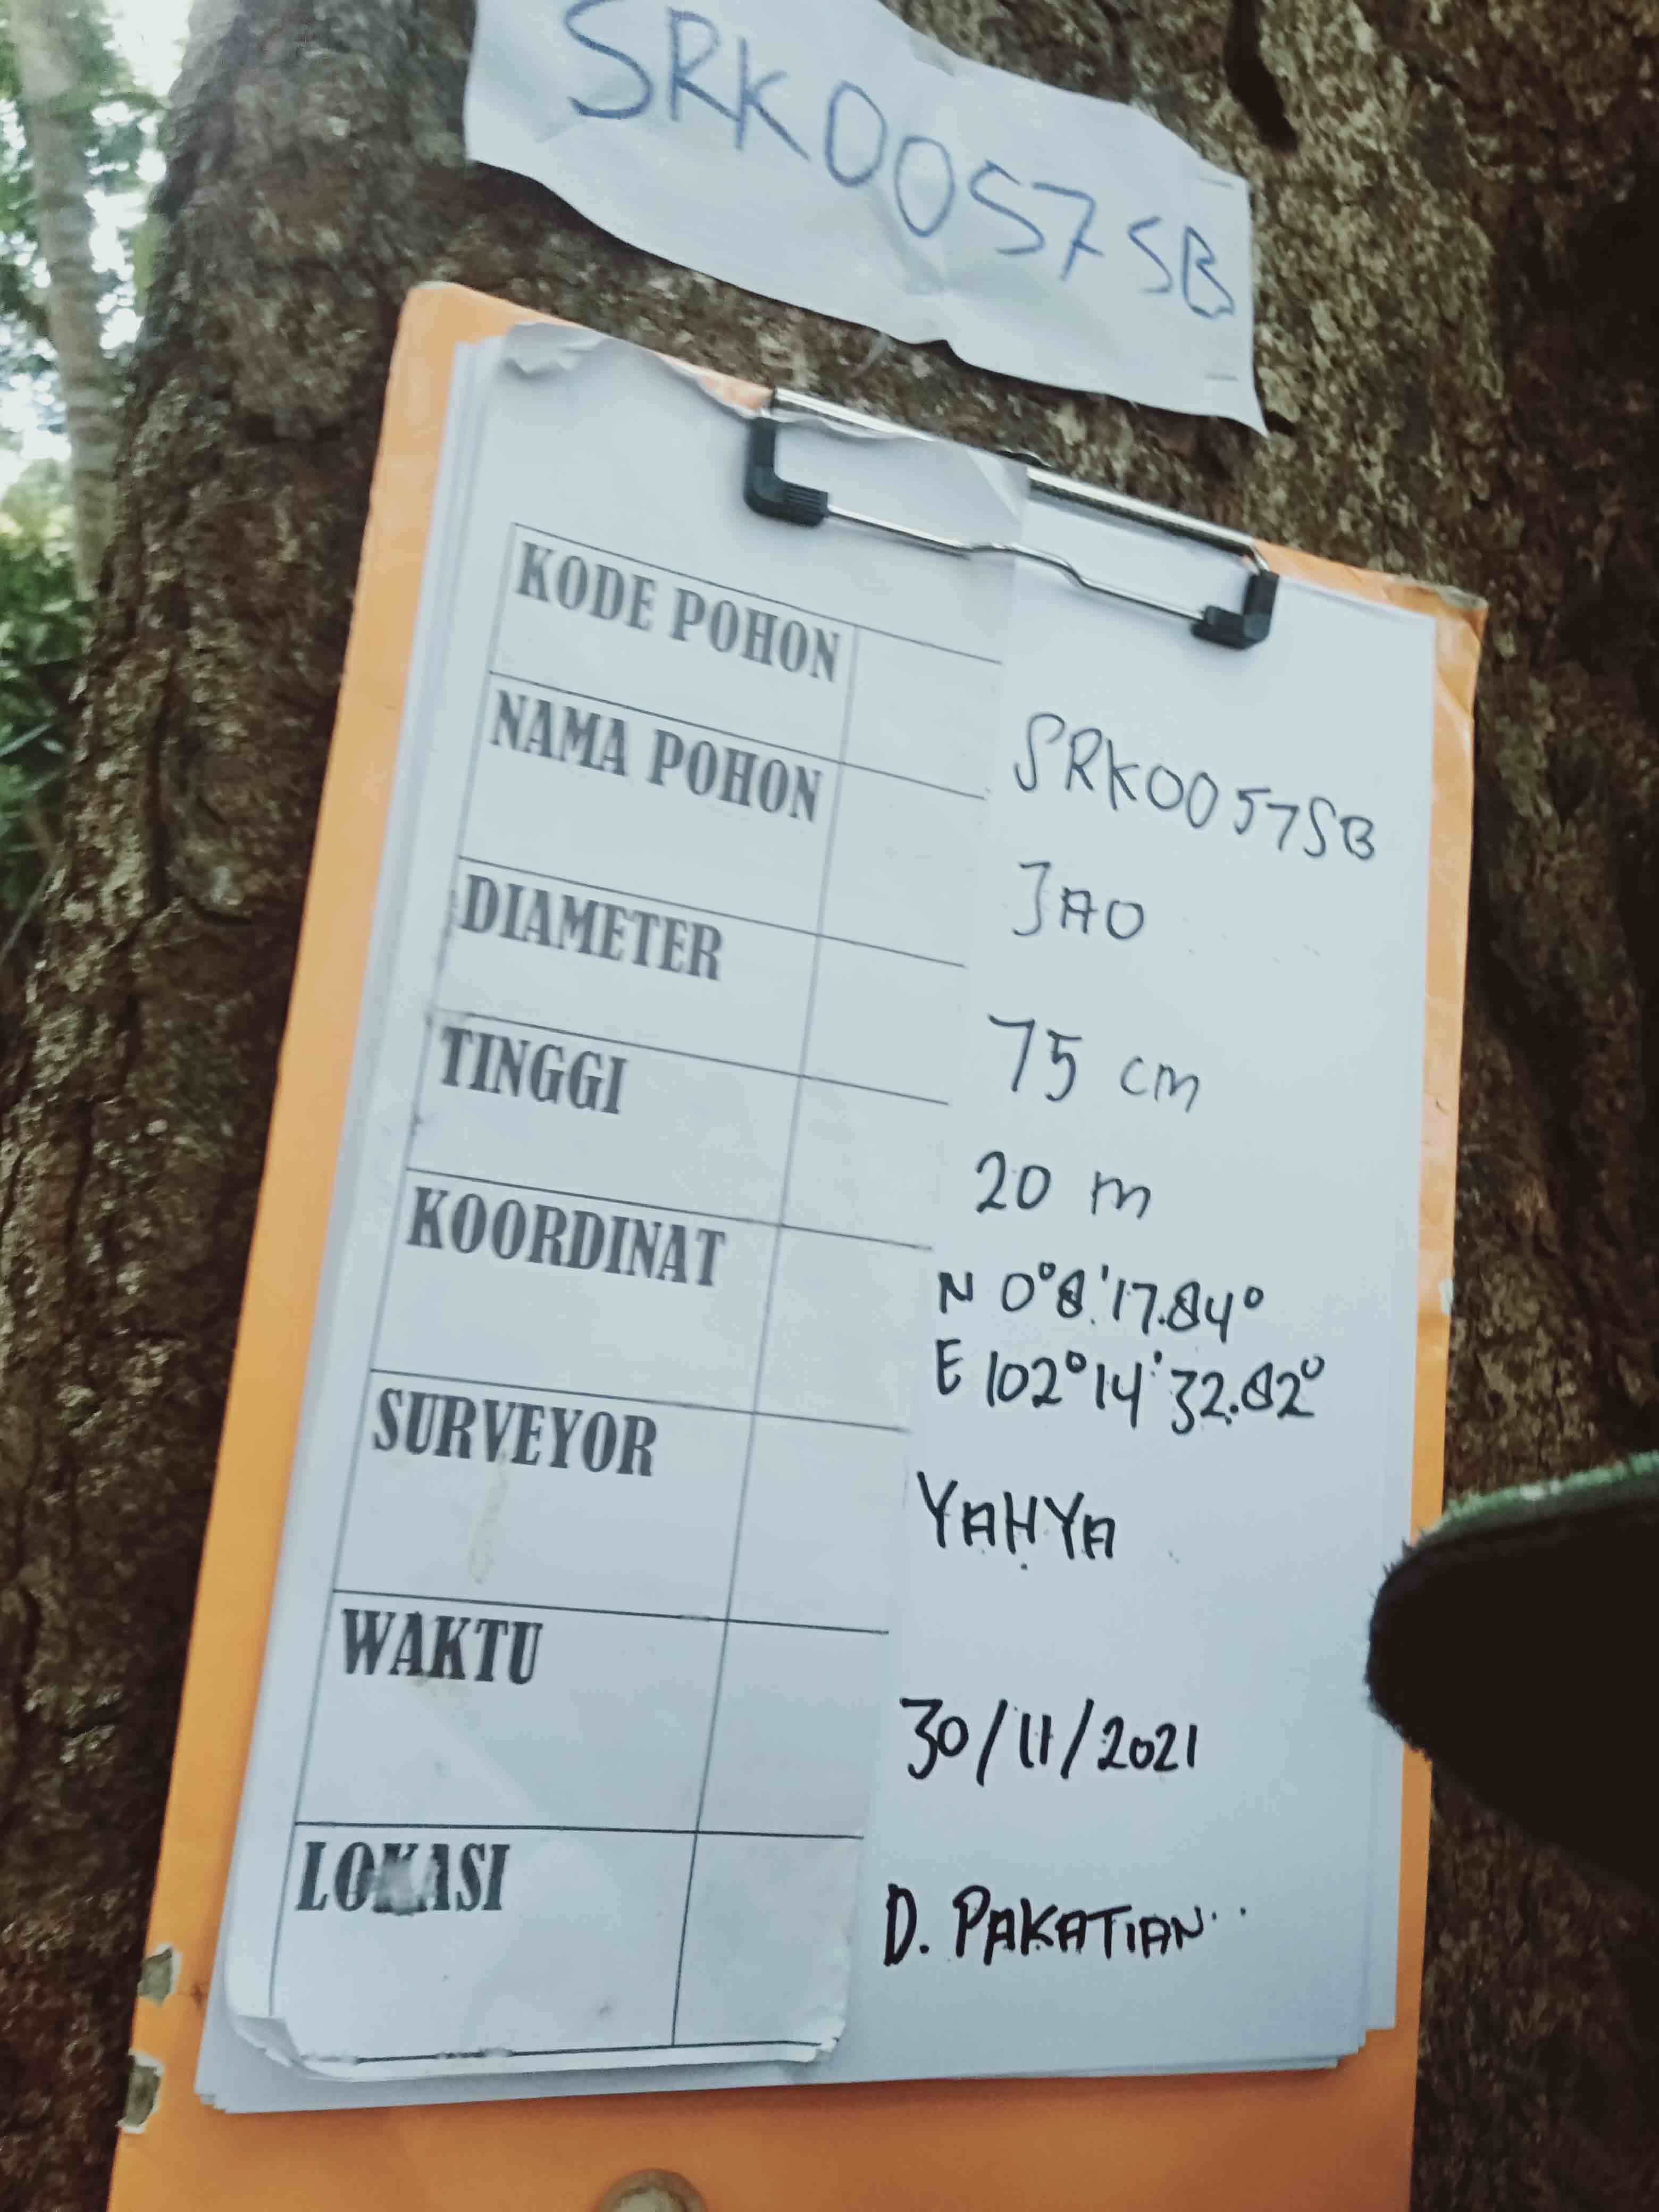 SRK0057SB
KODE POHON SRK0057SB
NAMA POHON JAO
DIAMETER 75 cm
TINGGI 20 m
KOORDINAT N 0°8'17.84°
E 102°14'32.82°
SURVEYOR YAHYA
WAKTU 30/11/2021
LOKASI D. PAKATIAN